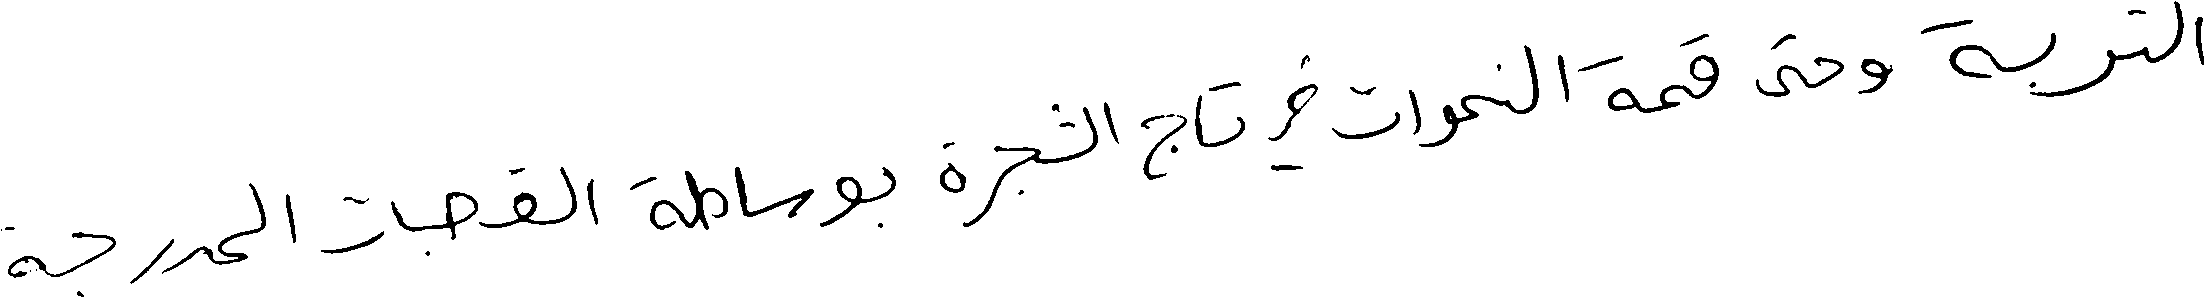 التربة وحتى قمة النموات في تاج الشجرة بوساطة القصبات المدرجة